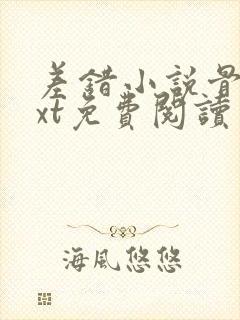 差錯小説骨
xt免費閱讀
海風悠悠